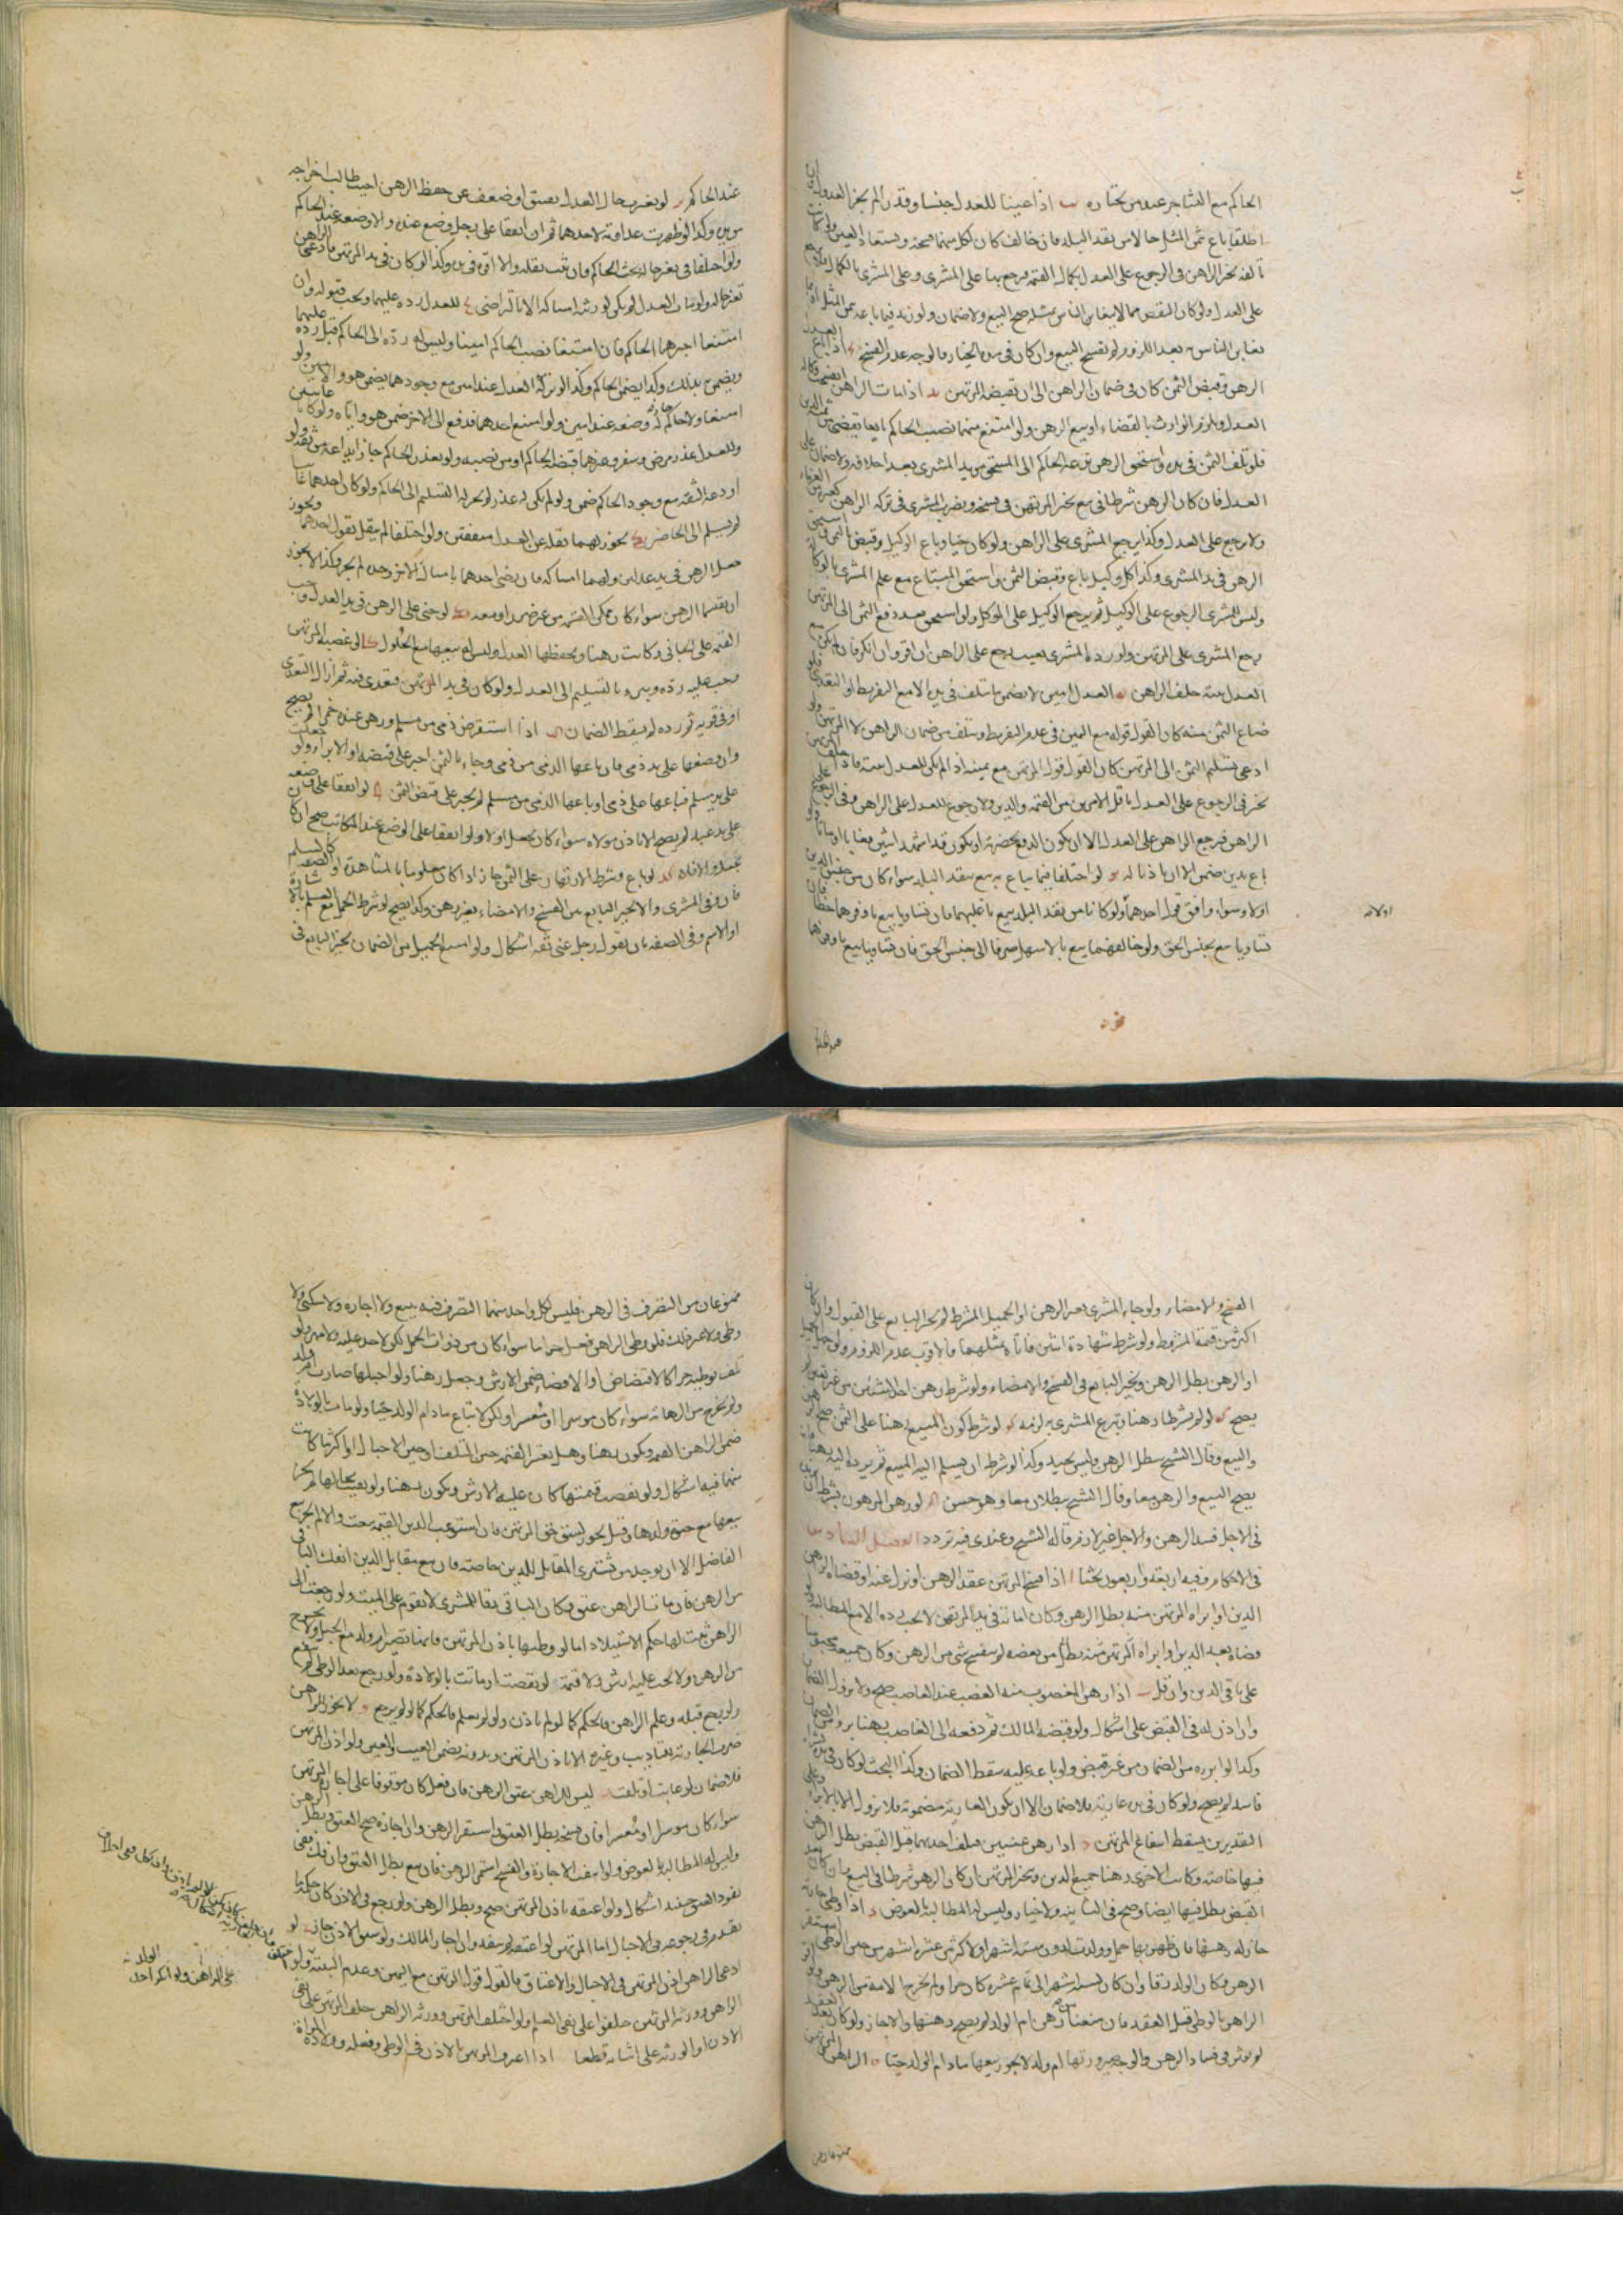 الحاكم مع التشاجر عند من يختاره يب اذا عينا للعدل جنسا وقدرا لم يجز العدول وان
اطلقا باع بثمن المثل حالا من نقد البلد فان خالف كان لكل منهما فسخه ويستعاد العين ولو كانت
تالفة تخير الراهن في الرجوع على العدل بكمال القيمة فيرجع بها على المشتري وعلى المشتري بالكمال فلا يرجع
على العدل ولو كان النقص مما لا يتغابن الناس بمثله صح البيع ولا ضمان ولو زيد فيما باعه بثمن المثل او بما
يتغابن الناس به بعد اللزوم لم يفسخ البيع وان كان في مدة الخيار فالوجه عدم الفسخ اذا باع العدل
الرهن وقبض الثمن كان في ضمان الراهن الى ان يقبضه المرتهن يد اذا مات الراهن انفسخت وكالة
العدل ويلزم الوارث بالقضاء او بيع الرهن ولو امتنع منهما نصب الحاكم بايعا يقضي من ثمنه الدين
فلو تلف الثمن في يده واستحق الرهن نزعه الحاكم الى المستحق من يد المشتري بعد احلافه ولا ضمان على
العدل فان كان الرهن شرطا في بيع تخير المرتهن في فسخه ويضرب المشتري في تركة الراهن كغيره من الغرماء
ولا يرجع على العدل وكذا يرجع المشتري على الراهن ولو كان حيا وباع الوكيل وقبض الثمن ثم استحق
الرهن في يد المشتري وكذا كل وكيل باع وقبض الثمن واستحق المبتاع مع علم المشتري بالوكالة
وليس للمشتري الرجوع على الوكيل ثم يرجع الوكيل على الموكل ولو استحق بعد دفع الثمن الى المرتهن
رجع المشتري على المرتهن ولو رده المشتري بعيب رجع على الراهن ان اقر وان انكر فان لم يكن مع
العدل بينة حلف الراهن يه العدل امين لا يضمن ما يتلف في يده الا مع التفريط او التعدي فلو
ضاع الثمن منه كان القول قوله مع اليمين في عدم التفريط ويتلف من ضمان الراهن لا المرتهن ولو
ادعى تسليم الثمن الى المرتهن كان القول قول المرتهن مع يمينه اذا لم يكن للعدل بينة فاذا حلف المرتهن
تخير في الرجوع على العدل باقل الامرين من القيمة والدين ولا رجوع للعدل على الراهن وفي الرجوع على
الراهن فيرجع الراهن على العدل الا ان يكون الدفع بحضرته او يكون قد اشهد اثنين فغابا او ماتا ولو
باع بدين ضمن الا ان ياذنا له يو لو اختلفا فيما يباع به بيع بنقد البلد سواء كان من جنس الدين
او لا وسواء وافق قول احدهما او لا ولو كانا من نقد البلد بيع باغلبهما فان تساويا بيع باوفرهما حظا فان
تساويا بيع بجنس الحق ولو خالفهما بيع بالاسهل صرفا الى جنس الحق فان تساويا بيع باوفرهما
او لا
عند الحاكم
عند الحاكم لو تغيرت حال العدل بفسق او ضعف عن حفظ الرهن اجيب طالب اخراجه
من يده وكذا لو ظهرت عداوته لاحدهما ثم ان اتفقا على رجل وضع عنده والا وضعه عند الحاكم
ولو اختلفا في تغير حاله بحث الحاكم فان ثبت نقله والا اقره في يده وكذا لو كان في يد المرتهن فادعى الراهن
تغير حاله ولو مات العدل لم يكن لورثته امساكه الا بالتراضي للعدل رده عليهما ويجب قبوله وان
امتنعا اجبرهما الحاكم فان استتبعا نصب الحاكم امينا وليس له رده الى الحاكم قبل رده عليهما
ويضمن بذلك وكذا يضمن الحاكم وكذا لو تركه العدل عند امين مع وجودهما يضمن هو والامين ولو
امتنعا ولا حاكم جاز له وضعه عند امين ولو امتنع احدهما فدفع الى الاخر ضمن هو واياه ولو كانا غائبين
وللعدل عذر من مرض وسفر وغيرهما قبضه الحاكم او من نصبه ولو تعذر الحاكم جاز ايداعه من ثقة ولو
اودعه الثقة مع وجود الحاكم ضمن ولو لم يكن له عذر لم يجز له التسليم الى الحاكم ولو كان احدهما غايبا
لم يسلم الى الحاضر يح يجوز لهما نقله عن العدل متفقين ولو اختلفا لم يقبل قول احدهما ويجوز
جعل الرهن في يد عدلين ولهما امساكه فان رضي احدهما بامساك الاخر وحده لم يجز وكذا لا يجوز
ان يقسما الرهن سواء كان يمكن القسمة من غير ضرر او معه يط لو جنى على الرهن في يد العدل وجب
القيمة على الجاني وكانت رهنا ويحفظها العدل وليس له بيعها مع الحلول ك لو غصبه المرتهن
وجب عليه رده ويبرء بالتسليم الى العدل ولو كان في يد المرتهن فتعدى فيه ثم ازال التعدي
او في قرية ثم رده لم يسقط الضمان كا اذا استقرض ذمي من مسلم ورهن عنده خمرا لم يصح
وان وضعها على يد ذمي فان باعها الذمي من ذمي وجاء بالثمن اجبر على قبضه او الابراء ولو جعلت
على يد مسلم فباعها على ذمي او باعها الذمي من مسلم لم يجبر على قبض الثمن كب لو اتفقا على وضعه
على يد عبد لم يصح الا باذن مولاه سواء كان بجعل او لا ولو اتفقا على الوضع عند المكاتب صح ان كان
بجعل والا فلا كج لو باع وشرط الارتهان على الثمن جاز اذا كان معلوما بالمشاهدة او الصفة كالسلم
فان وفى المشتري والا تخير البايع بين الفسخ والامضاء بغير رهن وكذا يصح لو شرط الحميل مع العلم باشارة
او الاسم وفي الصفة بان يقول رجل غني ثقة اشكال ولو امتنع الحميل من الضمان تخير البايع في
الفسخ والامضاء ولو جاء المشتري بغير الرهن او الحميل المشترط لم يجبر البايع على القبول وان كان
اكثر من قيمة المشروط ولو شرط شهادة اثنين فاتاه بمثلهما فالاقرب عدم اللزوم ولو جهل الحميل
او الرهن بطل الرهن وتخير البايع في الفسخ والامضاء ولو شرط رهن احد الشيئين من غير تعيين لم
يصح كد لو لم يشرطا رهنا وتبرع المشتري به لزمه كه لو شرط كون المبيع رهنا على الثمن صح الرهن
والبيع وقال الشيخ يبطل الرهن وليس بجيد وكذا لو شرط ان يسلم اليه المبيع ثم يرده اليه رهنا فانه
يصح البيع والرهن معا وقال الشيخ يبطلان معا وهو حسن كو لو رهن المرهون بشرط ان يزيده
في الاجل فسد الرهن والاجل غير لازم قاله الشيخ وعندي فيه تردد الفصل السادس
في الاحكام وفيه اربعة واربعون بحثا ا اذا فسخ المرتهن عقد الرهن او نزل عنه او قضاه الراهن
الدين او ابراه المرتهن منه بطل الرهن وكان امانة في يد المرتهن لا يجب رده الا مع المطالبة ولو
قضاه بعض الدين او ابراه المرتهن منه بطل من بعضه لم ينفسخ شيء من الرهن وكان جميعه محبوسا
على باقي الدين وان قل ب اذا رهن المغصوب منه الغصب عند الغاصب صح ولا يزول الضمان
وان اذن له في القبض على اشكال ولو قبضه المالك ثم دفعه الى الغاصب رهنا برئ من الضمان
وكذا لو ابرءه من الضمان من غير قبض ولو باعه عليه سقط الضمان وكذا البحث لو كان في يده بشراء
فاسد لم يصح ولو كان في يده عارية فلا ضمان الا ان يكون العارية مضمونة فلا يزول الا بالابراء وعلى
التقديرين يسقط انتفاع المرتهن ج اذا رهن عينين فتلف احديهما قبل القبض بطل الرهن
فيها خاصة وكانت الاخرى رهنا بجميع الدين وتخير المرتهن ان كان الرهن شرطا في البيع وان كان بعد
القبض بطل فيها ايضا وصح في الثانية ولا خيار وليس له المطالبة بالعوض د اذا وطئ جارية
جاز له رهنها فان ظهر بها حمل وولدت لدون ستة اشهر او لاكثر من عشرة اشهر من حين الوطي استقر
الرهن وكان الولد رقا وان كان لستة اشهر الى تمام عشرة كان حرا ولم تخرج الامة من الرهن ولو اقر
الراهن بالوطي قبل العقد فان منعنا من رهن ام الولد لم يصح رهنها والا جاز ولو كان بعد العقد
لم يؤثر في فساد الرهن والوجه صيرورتها ام ولد لا يجوز بيعها ما دام الولد حيا ه الراهن والمرتهن
ممنوعان من
ممنوعان من التصرف في الرهن فليس لكل واحد منهما التصرف فيه ببيع ولا اجارة ولا سكنى ولا
وطي ولا غير ذلك فلو وطئ الراهن فعل حراما سواء كان من ذوات الحمل لكن لا حد عليه ولا مهر ولو
تلف بوطيه جزءا كالافتضاض او الافضاء ضمن الارش وجعل رهنا ولو احبلها صارت ام ولد
ولم تخرج من الرهانة سواء كان موسرا او معسرا ولكن لا تباع ما دام الولد حيا ولو ماتت بالولادة
ضمن الراهن القيمة ويكون رهنا وهل يعتبر القيمة حين التلف او حين الاحبال او اكثر ما كانت
منهما فيه اشكال ولو نقصت قيمتها كان عليه الارش ويكون رهنا ولو بقيت بحالها لم يجز
بيعها مع حيوة ولدها وقيل يجوز لسبق حق المرتهن فان استوعب الدين القيمة بيعت والا لم يجز بيع
الفاضل الا ان يوجد من يشتري المقابل للدين خاصة فان بيع مقابل الدين انفك الباقي
من الرهن فان مات الراهن عتق وكان الباقي رقا للمشتري لا تقوم على الميت ولو رجعت الى
الراهن ثبت لها حكم الاستيلاد اما لو وطيها باذن المرتهن فانها تصير ام ولد مع الحبل ولا تخرج
من الرهن ولا يجب عليه ارش ولا قيمة لو نقصت او ماتت بالولادة ولو رجع بعد الوطي لم ينفع
ولو رجع قبله وعلم الراهن فالحكم كما لو لم ياذن ولو لم يعلم فالحكم كما لو لم يرجع و لا يجوز للراهن
ضرب الجارية بتاديب وغيره الا باذن المرتهن وبدونه يضمن العيب والعين ولو اذن المرتهن
فلا ضمان لو عابت او تلفت ز ليس للراهن عتق الرهن فان فعل كان موقوفا على اجازة المرتهن
سواء كان موسرا او معسرا فان فسخه بطل العتق واستقر الرهن وان اجازه صح العتق وبطل الرهن
وليس له المطالبة بالعوض ولو انتفت الاجازة والفسخ استمر الرهن فان بيع بطل العتق وان فك ففي
نفوذ العتق حينئذ اشكال ولو اعتقه باذن المرتهن صح وبطل الرهن ولو رجع في الاذن كان حكمه ما
تقدم في رجوعه في الاحبال اما المرتهن لو اعتقه لم ينفذ وان اجاز المالك ولو سبق الاذن جاز ح لو
ادعى الراهن اذن المرتهن في الاحبال والاعتاق فالقول قول المرتهن مع اليمين وعدم البينة ولو اختلف
الراهن وورثة المرتهن حلفوا على نفي العلم ولو اختلف المرتهن وورثة الراهن حلف المرتهن على نفي
الاذن او الورثة على اثباته قطعا اذا اعترف المرتهن بالاذن في الوطي وفعله وولادة المراة
على الراهن ولو انكر احد